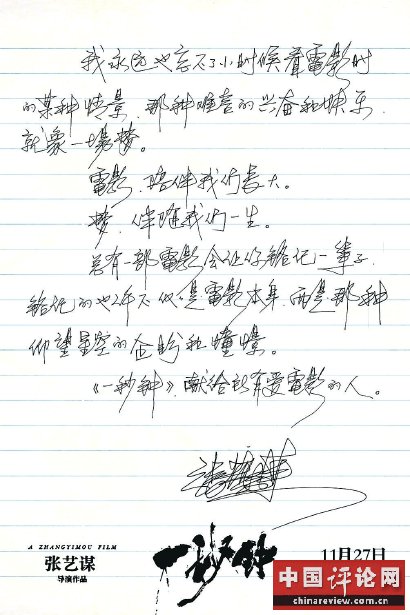 我永远也忘不了小时候看電影时
的某种情景,那种难言的兴奋和快乐,
就象一場梦。
電影,陪伴我们長大。
梦,伴随我们一生。
总有一部電影会让你铭记一辈子,
铭记的也许不仅是電影本身,而是那种
仰望星空的企盼和憧憬。
《一秒钟》,献给所有爱電影的人。
A ZHANGYIMOU FILM
张艺谋
导演作品
一秒钟
11月27日
中国评论网
chinareview.com.cn